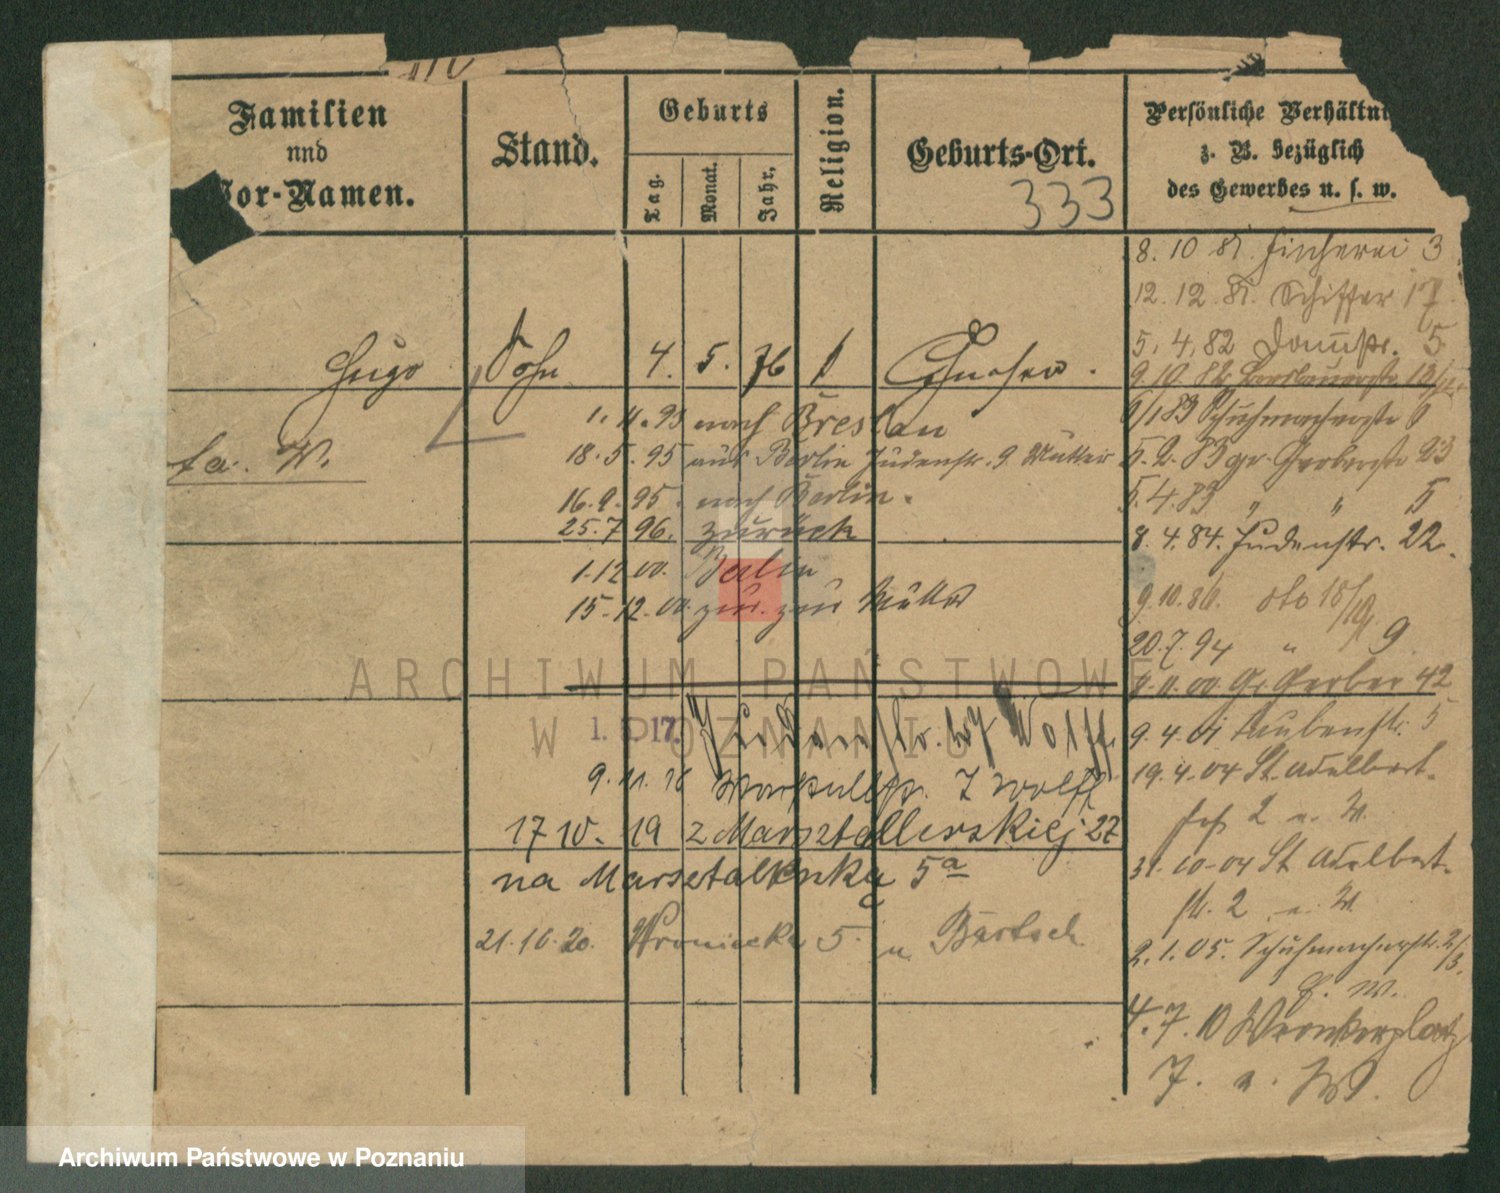 Familien
und
Vor-Namen.
Stand.
Geburts
Tag.
Monat.
Jahr.
Religion.
Geburts-Ort.
333
Persönliche Verhältni
z. B. bezüglich
des Gewerbes u. s. w.
8. 10 81. Fischerei 3
12. 12. 81. Schiffer 17
5. 4. 82 Domstr. 5
Hugo Sohn 4. 5. 76 Gnesen.
9/10. 82 Breslauerstr. 13/14
1. 4. 93 nach Breslau
6/1 83 Schuhmacherstr 6
ta. W.
18. 5. 95 aus Berlin Judenstr. 9 Mutter
5. 2. 83 gr. Gerberstr 23
16. 9. 95. nach Berlin.
5. 4. 83 " " 5
25. 7 96. zurück
8. 4. 84. Judenstr. 22.
1. 12 00. Berlin
9. 10. 86. dto 15/16
15. 12. 00. zur. zur Mutter
20. 7. 94 " 9
ARCHIWUM PAŃSTWOWE
W POZNANIU
8. 11. 00 Gr Gerber 42
1. 17. Judenstr. Wolff
9. 4. 01 Taubenstr. 5
9. 11. 18 Marstallstr. 7 Wolff
19. 4. 04 St. Adalbert-
str 2 u. W.
17 10. 19 z Marsztallerskiej 27
31. 10. 04 St Adalbert-
na Marsztalknką 5a
str. 2 u. W
21. 10. 20. Wroniecka 5 u Bartsch
2. 1. 05. Schuhmacherstr. 2/3.
b. W.
4. 7. 10 Wronkerplatz
7. u. W.
Archiwum Państwowe w Poznaniu